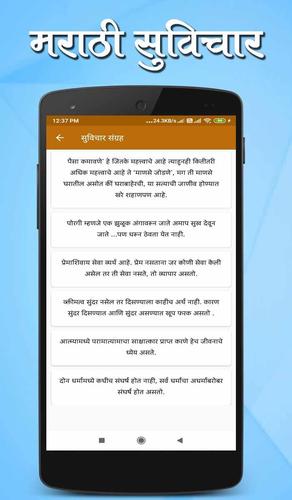 मराठी सुविचार
12:37 PM
24.3KB/s
सुविचार संग्रह
पैसा कमावणे' हे जितके महत्वाचे आहे त्याहूनही कितीतरी
अधिक महत्वाचे आहे ते 'माणसे जोडणे', मग ती माणसे
घरातील असोत कीं घराबाहेरची, या सत्याची जाणीव होण्यात
खरे शहाणपण आहे.
पोरगी म्हणजे एक झुळूक अंगावरून जाते अमाप सुख देवून
जाते ...पण धरून ठेवता येत नाही.
प्रेमाशिवाय सेवा व्यर्थ आहे. प्रेम नसताना जर कोणी सेवा केली
असेल तर ती सेवा नसते, तो व्यापार असतो.
व्यक्तिमत्व सुंदर नसेल तर दिसण्याला काहीच अर्थ नाही. कारण
सुंदर दिसण्यात आणि सुंदर असण्यात खूप फरक असतो .
आत्म्यामध्ये परामात्मामाचा साक्षात्कार प्राप्त करणे हेच जीवनाचे
ध्येय असते.
दोन धर्मांमध्ये कधीच संघर्ष होत नाही, सर्व धर्मांचा अधर्माबरोबर
संघर्ष होत असतो.